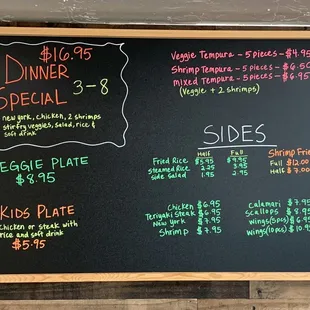 $16.95
DINNER
SPECIAL 3-8
new york, chicken, 2 shrimps
stirfry veggies, salad, rice &
soft drink
VEGGIE PLATE
$8.95
KIDS PLATE
chicken or steak with
rice and soft drink
$5.95
Veggie Tempura - 5 pieces - $4.95
Shrimp Tempura - 5 pieces - $6.50
mixed Tempura - 5 pieces - $6.95
(Veggie + 2 shrimps)
SIDES
Half Full
Fried Rice $5.95 $9.95
steamed Rice 2.25 3.95
side salad 1.95 2.95
Shrimp Fri
Full $12.00
Half $7.00
Chicken $6.95
Teriyaki Steak $6.95
New York $7.95
Shrimp $7.95
calamari $7.95
scallops $8.95
wings(5pcs) $6.95
wings(10pcs) $10.95